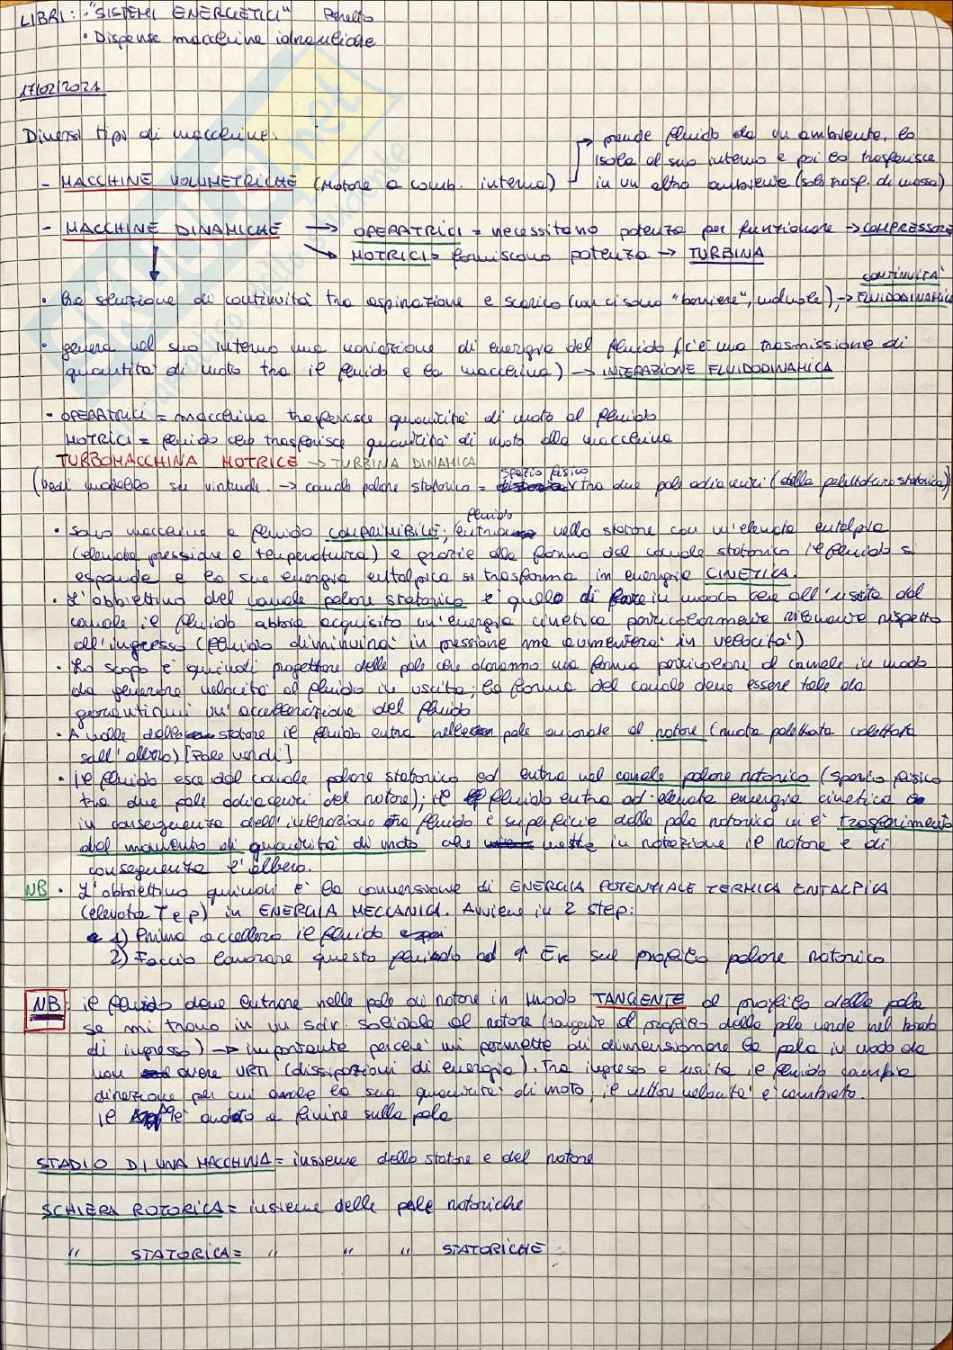 LIBRI: · "SISTEMI ENERGETICI"
· Dispense macchine idrauliche
17/02/2021
Diversi tipi di macchine:
- MACCHINE VOLUMETRICHE (Motore a comb. interna) → prende fluido da un ambiente, lo
isola al suo interno e poi lo trasferisce
in un altro ambiente (solo trasf. di massa)
- MACCHINE DINAMICHE → OPERATRICI = necessitano potenza per funzionare → COMPRESSORE
↘ MOTRICI = forniscono potenza → TURBINA
· Ha situazione di continuità tra aspirazione e scarico (non ci sono "barriere", valvole) → CONTINUITÀ
FLUIDODINAMICA
· genera nel suo interno una variazione di energia del fluido (c'è una trasmissione di
quantità di moto tra il fluido e la macchina) → INTERAZIONE FLUIDODINAMICA
· OPERATRICI = macchina trasferisce quantità di moto al fluido
MOTRICI = fluido che trasferisce quantità di moto alla macchina
TURBOMACCHINA MOTRICE → TURBINA DINAMICA
(Vedi modello su virtuale → canale palare statorico = spazio fisico tra due pale adiacenti (della palettatura statorica)
· Sono macchine a fluido COMPRIMIBILE; fluido entra nello statore con un'elevata entalpia
(elevata pressione e temperatura) e grazie alla forma del canale statorico il fluido si
espande e la sua energia entalpica si trasforma in energia CINETICA.
· L'obbiettivo del canale palare statorico è quello di fare in modo che all'uscita del
canale il fluido abbia acquisito un'energia cinetica particolarmente rilevante rispetto
all'ingresso (fluido diminuirà in pressione ma aumenterà in velocità)
· Lo scopo è quindi progettare delle pale che daranno una forma particolare al canale in modo
da generare velocità al fluido in uscita; la forma del canale deve essere tale da
garantirmi un'accellerazione del fluido
· A valle dello statore il fluido entra nelle pale ancorate al rotore (ruota palettata calettata
sull'albero) [Pale verdi]
· Il fluido esce dal canale palare statorico ed entra nel canale palare rotorico (spazio fisico
tra due pale adiacenti del rotore); il fluido entra ad elevata energia cinetica
in conseguenza dell'interazione tra fluido e superficie della pala rotorica vi è trasferimento
del momento di quantità di moto che mette in rotazione il rotore e di
conseguenza l'albero.
NB · L'obbiettivo quindi è la conversione di ENERGIA POTENZIALE TERMICA ENTALPICA
(elevata T e p) in ENERGIA MECCANICA. Avviene in 2 step:
1) Prima accellero il fluido
2) Faccio lavorare questo fluido ad ↑ Ek sul profilo palare rotorico
NB: il fluido deve entrare nelle pale di rotore in modo TANGENTE al profilo della pala
se mi trovo in un sdr. solidale al rotore (tangente al profilo della pala verde nel bordo
di ingresso) → importante perché mi permette di dimensionare la pala in modo da
non avere URTI (dissipazioni di energia). Tra ingresso e uscita il fluido cambia
direzione per cui anche la sua quantità di moto, il vettore velocità è cambiato.
Il è andato a finire sulla pala
STADIO DI UNA MACCHINA = insieme dello statore e del rotore
SCHIERA ROTORICA = insieme delle pale rotoriche
" STATORICA = " " " STATORICHE